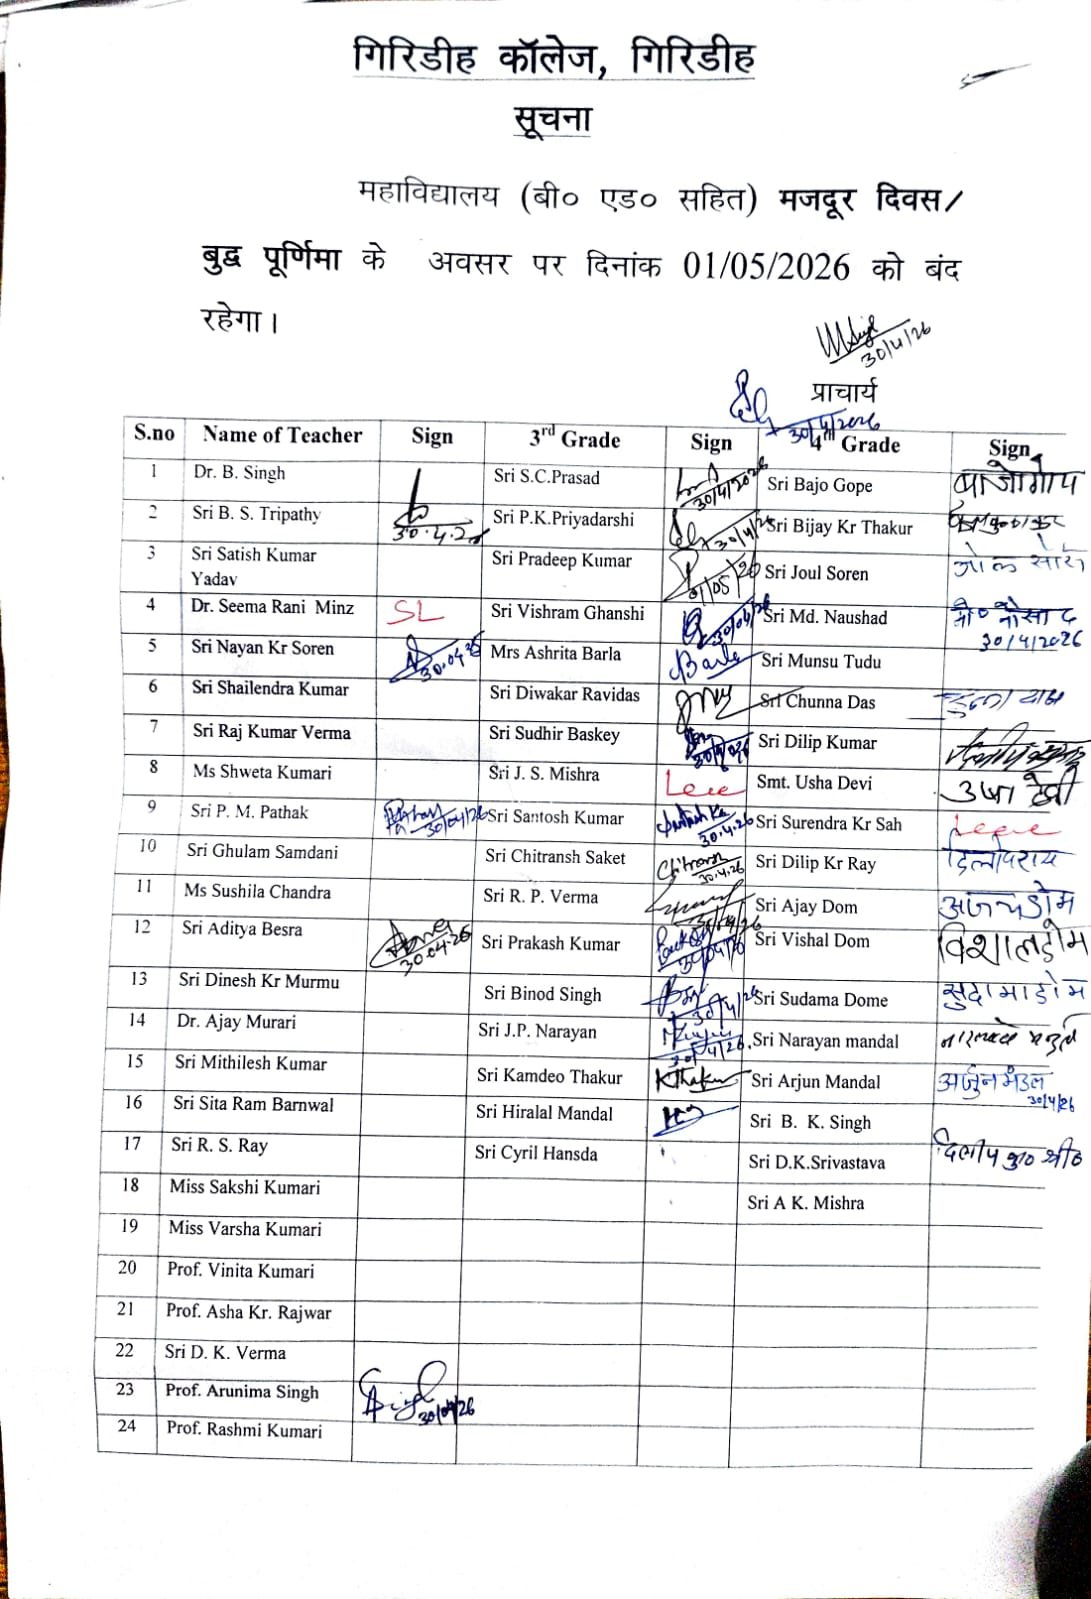 गिरिडीह कॉलेज, गिरिडीह
सूचना
महाविद्यालय (बी० एड० सहित) मजदूर दिवस/
बुद्ध पूर्णिमा के अवसर पर दिनांक 01/05/2026 को बंद
रहेगा।
30/4/26
प्राचार्य
30/4/2026
S.no Name of Teacher Sign 3rd Grade Sign 4th Grade Sign
1 Dr. B. Singh Sri S.C.Prasad 30/4/2026 Sri Bajo Gope बाजोगोप
2 Sri B. S. Tripathy 30.4.26 Sri P.K.Priyadarshi 30/4/26 Sri Bijay Kr Thakur
3 Sri Satish Kumar Yadav Sri Pradeep Kumar 01/05/26 Sri Joul Soren
4 Dr. Seema Rani Minz SL Sri Vishram Ghanshi 30/04/26 Sri Md. Naushad 30/4/2026
5 Sri Nayan Kr Soren 30.04.26 Mrs Ashrita Barla Barla Sri Munsu Tudu
6 Sri Shailendra Kumar Sri Diwakar Ravidas Sri Chunna Das
7 Sri Raj Kumar Verma Sri Sudhir Baskey Sri Dilip Kumar
8 Ms Shweta Kumari Sri J. S. Mishra Smt. Usha Devi उषा देवी
9 Sri P. M. Pathak 30/04/26 Sri Santosh Kumar 30.4.26 Sri Surendra Kr Sah
10 Sri Ghulam Samdani Sri Chitransh Saket 30.4.26 Sri Dilip Kr Ray
11 Ms Sushila Chandra Sri R. P. Verma Sri Ajay Dom
12 Sri Aditya Besra 30.04.26 Sri Prakash Kumar Sri Vishal Dom विशाल डोम
13 Sri Dinesh Kr Murmu Sri Binod Singh 30/4/26 Sri Sudama Dome सुदामा डोम
14 Dr. Ajay Murari Sri J.P. Narayan 30/4/26 Sri Narayan mandal
15 Sri Mithilesh Kumar Sri Kamdeo Thakur KThakur Sri Arjun Mandal अर्जुन मंडल 30/4/26
16 Sri Sita Ram Barnwal Sri Hiralal Mandal Sri B. K. Singh
17 Sri R. S. Ray Sri Cyril Hansda Sri D.K.Srivastava
18 Miss Sakshi Kumari Sri A K. Mishra
19 Miss Varsha Kumari
20 Prof. Vinita Kumari
21 Prof. Asha Kr. Rajwar
22 Sri D. K. Verma
23 Prof. Arunima Singh 30/04/26
24 Prof. Rashmi Kumari